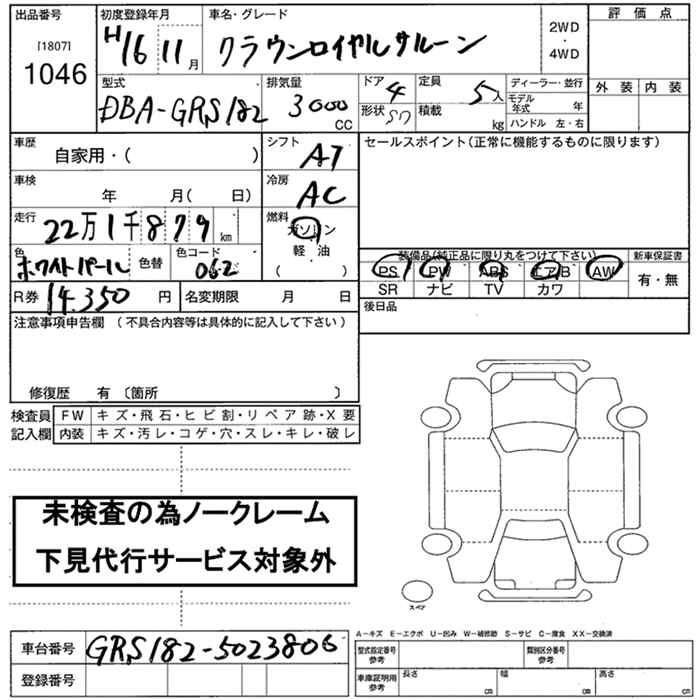 出品番号
[1807]
1046
初度登録年月
H16 11月
車名・グレード
クラウンロイヤルサルーン
2WD
・
4WD
評価点
外装 内装
型式
DBA-GRS182
排気量
3000
CC
ドア 4
形状 SD
定員 5人
積載 kg
ディーラー・並行
モデル年式 年
ハンドル 左・右
車歴
自家用・( )
シフト
AT
車検
年 月( 日)
冷房
AC
走行
22万1千879km
燃料
ガソリン
軽・油
( )
色
ホワイトパール
色替
色コード
062
R券 14,350円
名変期限 月 日
セールスポイント(正常に機能するものに限ります)
装備品(純正品に限り丸をつけて下さい)
PS PW ABS エアB AW
SR ナビ TV カワ
新車保証書
有・無
後日品
注意事項申告欄 (不具合内容等は具体的に記入して下さい)
修復歴 有 〔箇所 〕
検査員記入欄
FW キズ・飛石・ヒビ割・リペア跡・X要
内装 キズ・汚レ・コゲ・穴・スレ・キレ・破レ
未検査の為ノークレーム
下見代行サービス対象外
スペア
車台番号 GRS182-5023806
登録番号
A-キズ E-エクボ U-凹み W-補修跡 S-サビ C-腐食 XX-交換済
型式指定番号
参考
類別区分番号
参考
車庫証明用
参考
長さ cm
幅 cm
高さ cm